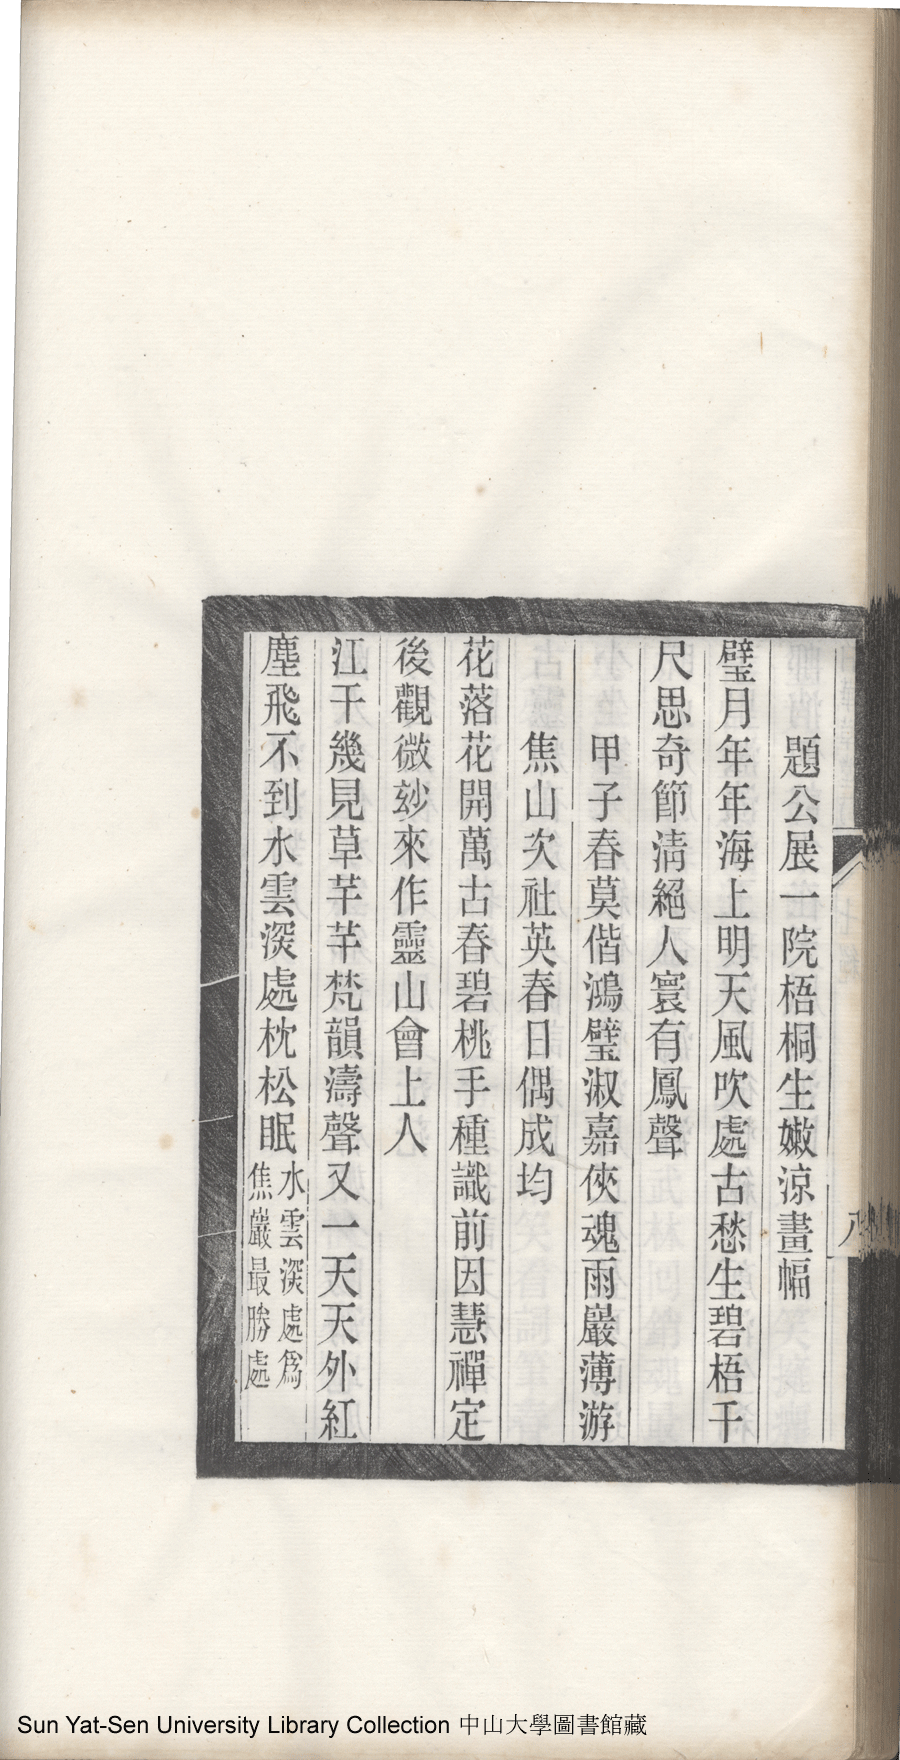 題公展一院梧桐生嫩涼畫幅
璧月年年海上明天風吹處古愁生碧梧千
尺思奇節淸絕人寰有鳳聲
甲子春莫偕鴻璧淑嘉俠魂雨巖薄游
焦山次社英春日偶成均
花落花開萬古春碧桃手種識前因慧禪定
後觀微玅來作靈山會上人
江干幾見草芊芊梵韻濤聲又一天天外紅
塵飛不到水雲深處枕松眠
水雲深處爲
焦巖最勝處
八
Sun Yat-Sen University Library Collection 中山大學圖書館藏